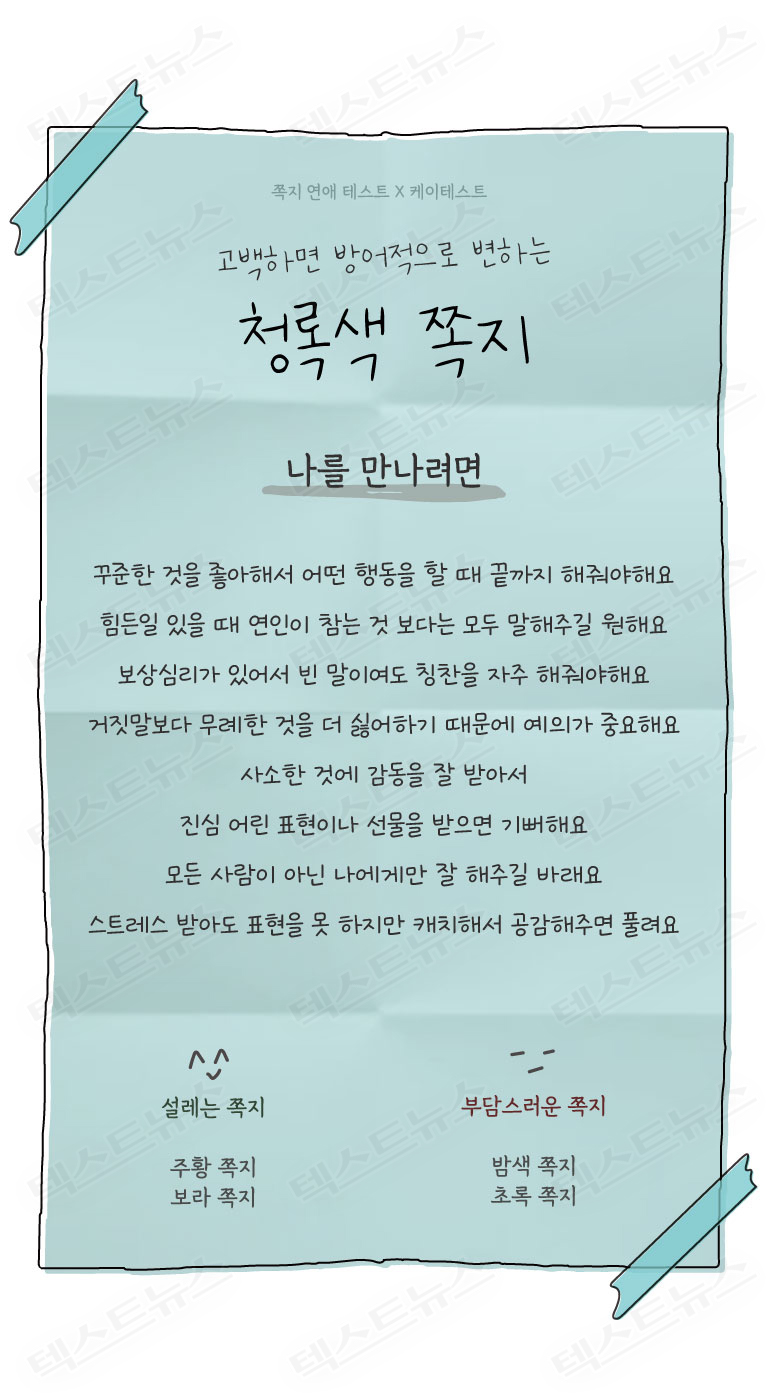 쪽지 연애 테스트 X 케이테스트
고백하면 방어적으로 변하는
청록색 쪽지
나를 만나려면
꾸준한 것을 좋아해서 어떤 행동을 할 때 끝까지 해줘야해요
힘든일 있을 때 연인이 참는 것 보다는 모두 말해주길 원해요
보상심리가 있어서 빈 말이여도 칭찬을 자주 해줘야해요
거짓말보다 무례한 것을 더 싫어하기 때문에 예의가 중요해요
사소한 것에 감동을 잘 받아서
진심 어린 표현이나 선물을 받으면 기뻐해요
모든 사람이 아닌 나에게만 잘 해주길 바래요
스트레스 받아도 표현을 못 하지만 캐치해서 공감해주면 풀려요
설레는 쪽지
주황 쪽지
보라 쪽지
부담스러운 쪽지
밤색 쪽지
초록 쪽지
텍스트뉴스